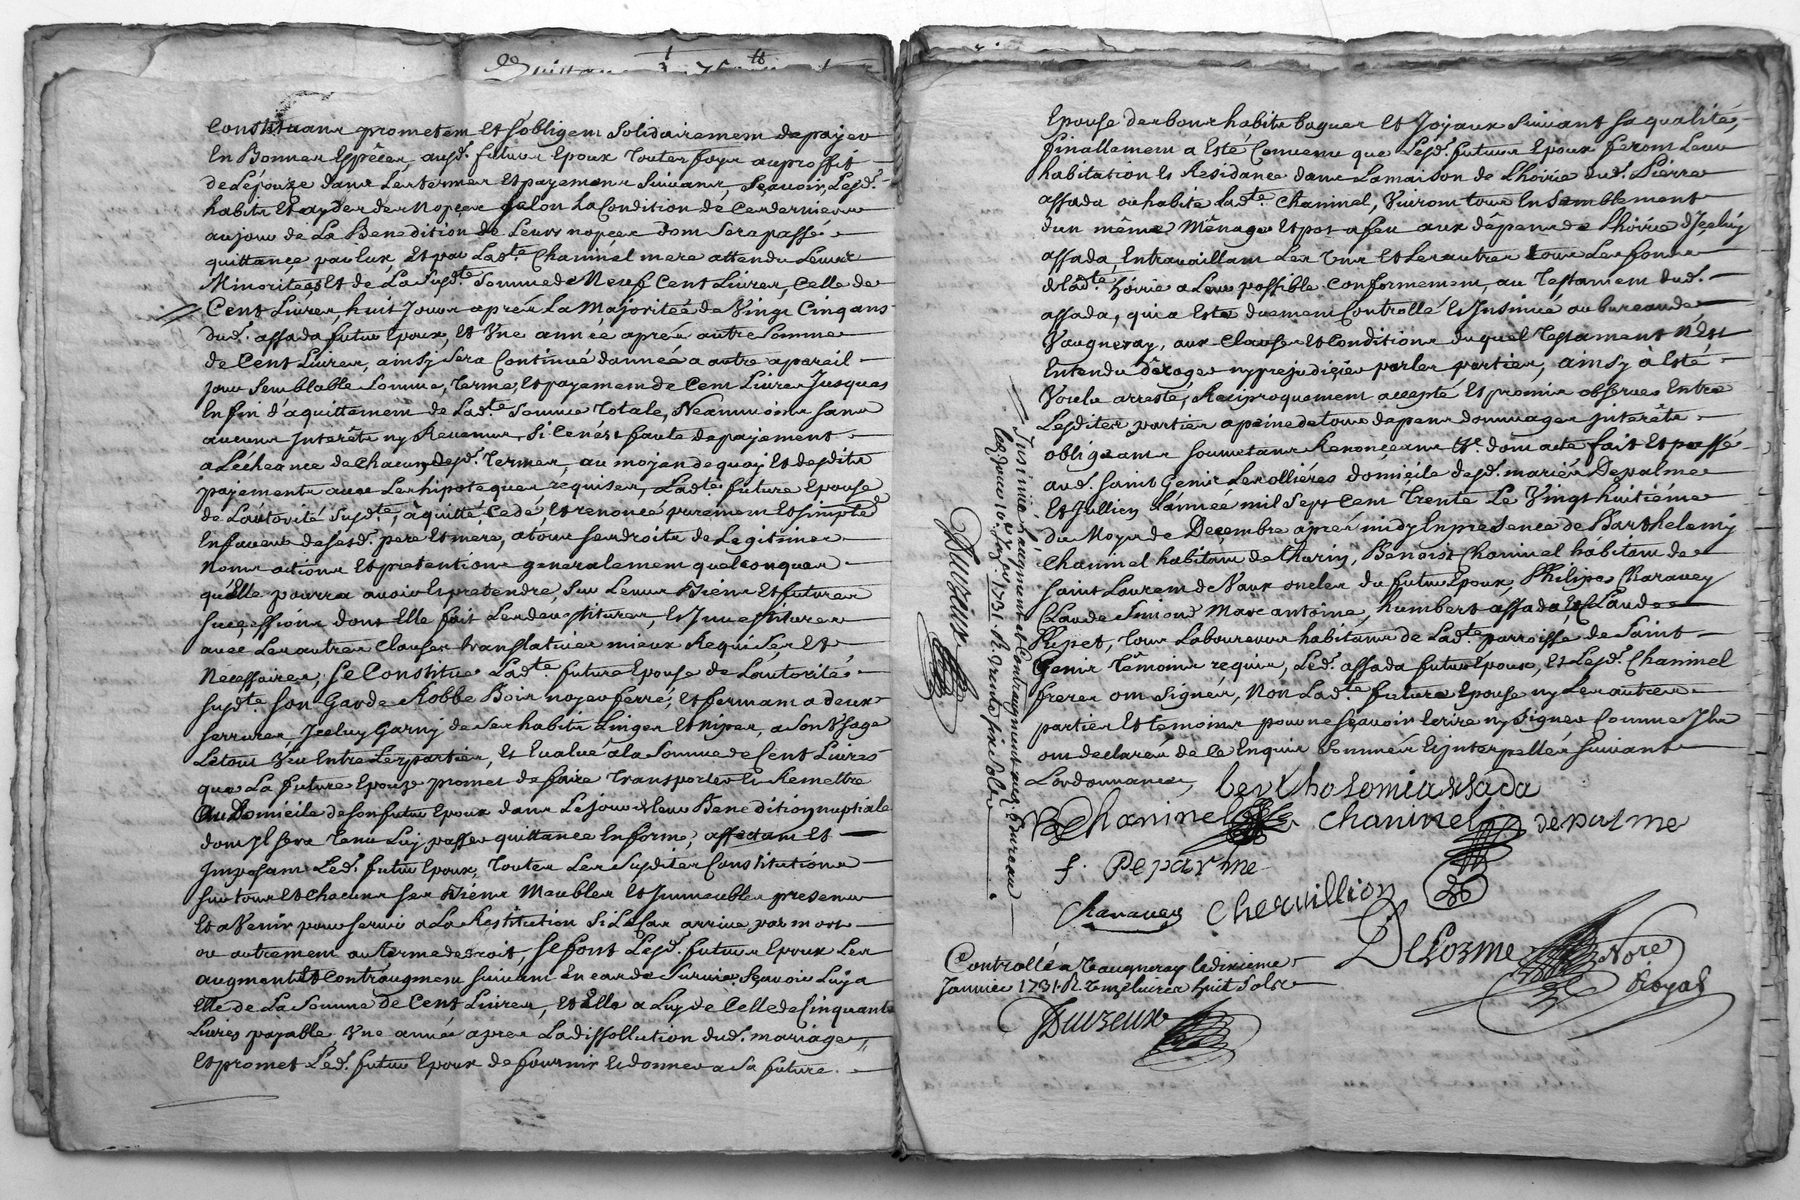 Constituans prometem et sobligent solidairement depayer
En Bonnes Espêces ausd. futur Epoux Toutes foys auproffit
de Lépouze dans Les termes et payemens suivans, Sçavoir Lesd.
habits et aydes de Nopces selon La Condition de Ces derniers
au jour de La Benedition de Leurs nopces dont sera passé
quittançe par lux, et par Ladte. Chaninel mere attendu Leurs
Minoriteés et de La susdte. Somme de Neuf Cent Livres, Celle de
Cent Livres, huit Jours aprés La Majoriteé de Vingt Cinq ans
dud. assada futur Epoux, et Vne année aprés autre Somme
de Cent Livres, ainsy sera Continué dannée a autre a pareil
jour Semblable Somme, Terme, et payement de Cent Livres Jusques
En fin d'aquittement de Ladte. Somme Totale, Neanmoins sans
aucuns Jnterêts ny Revenus, si Cenést faute depayement
a Lécheance de Chacun desd. Termes, au moyen dequoy et desdits
payements avec Les hipoteques requises, Ladte. future Epouse
de L'autorité susdte., a quitté, Cedé, et renoncé purement et simplt.
En faveur de sesd. pere et mere, a tous ses droits de Legitimes
Noms actions et pretentions generalement quelconques
qu'Elle pourra avoir et pretendre, sur Leurs Biens et futures
sucçessions dont Elle fait Les devestitures, et Jnvestitures
avec Les autres Clauses translatives mieux Requises et
Necessaires, se Constitue Ladte. future Epouse de L'autorité
susdte. son Garde Robbe Bois noyer ferré, et fermant a deux
serrures Jceluy Garny de ses habits Linges et Nipes, a son Vsage
Le tout Veu Entre Les parties, et Evalué a la Somme de Cent Livres
que La future Epouze promet de faire Transporter et Remettre
au Domicile de son futur Epoux dans Le jour de leur Benedition nuptiale
dont Jl sera Tenu Luy passer quittance En forme, affectant et
Jmposant Led. futur Epoux, Toutes Les susdites Constitutions
sur tous et Chacuns ses Biens Meubles et Jmmeubles presens
Et a Venir pour servir a La Restitution Si Le Cas arrive par mort
ou autrement au terme de droit, se font Lesd. futurs Epoux Les
augment et Contraugment suivant En Cas de Survie, Sçavoir Luy a
Elle de La Somme de Cent Livres, et Elle a Luy de Celle de Cinquante
Livres payable Vne année aprés La dissollution dud. mariage,
Et promet Led. futur Epoux de fournir et donner a sa future
Epouse des bons habits bagues et Joyaux suivant sa qualité,
finallement a Esté Convenu que Lesd. futurs Epoux feront Leur
habitation et Residance dans La maison de Lhoirie dud. Pierre
assada ou habite Ladte. Chaninel, Vivront tous En semblement
d'un même Mênage et pot a feu aux dêpens de Lhoirie d'Jçeluy
assada, En travaillant Les Vns et Les autres tous Les fonds
de Ladte. hoirie a Leur possible Conformement, au Testament dud.
assada, qui a Esté duement Controllé et Jnsinué au bureau de
Vaugneray, aux Clauses et Conditions duquel Testament N'Est
Entendu dêroger ny prejudiçier par les parties, ainsy a Esté
Voulu arresté, Reciproquement accepté et promis observer Entre
Lesdites parties a peine de tous depens dommages Jnterêts
obligeans soumetans Renonçeans etc. dont acte fait et passé
aud. Saint Genis Les ollières domicile desd. mariés Depalme
Et Jullien L'année mil Sept Cent Trente Le Vingt huitiéme
du Moys de Decembre aprés midy En presence de Barthelemy
Chaninel habitant de thurin, Benoist Chaninel habitant de
Saint Laurent de Vaux oncles du futur Epoux, Philipes Charavey
Claude Simond Marc antoine, humbert assada, et Claude
Pupet, tous Laboureurs habitans de Ladte. parroisse de Saint
Genis Têmoins requis, Led. assada futur Epoux, et Lesd. Chaninel
freres ont signés, Non Ladte. future Epouse ny Les autres
parties et temoins pour ne sçavoir Ecrire ny signer Comme Jls
ont declarés de Ce Enquis sommés et jnterpellés suivant
Lordonnance,
berthosomiassada
BChaninel Chaninel depalme
f. Deparme
Charavey Chervillion
Delorme Nore.
Royal
Controllé a Vaugneray le dixieme
Janvier 1731. R. Onze livres huit Sols
Duvzeux
Jnsinué Laugment et Contraugment aud. bureau
lesd. jour 10. Janvier 1731. R. trente six Sols
Duvzeux